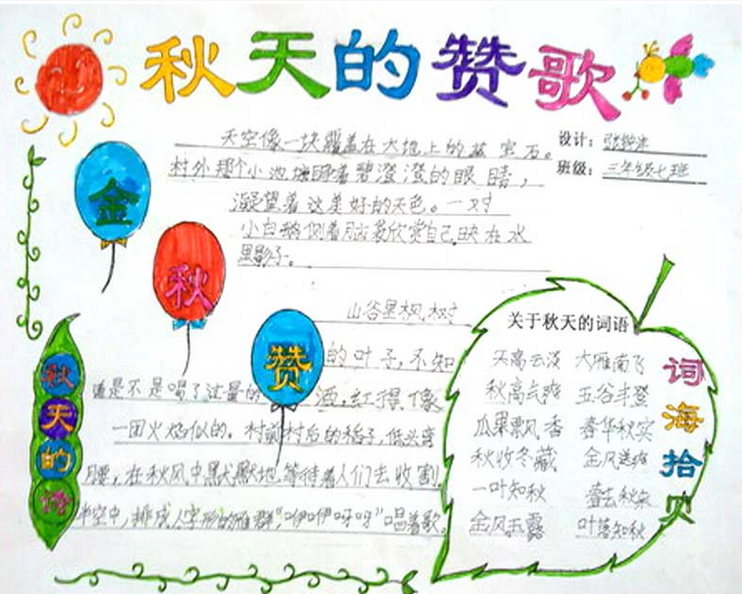 秋天的赞歌
天空像一块覆盖在大地上的蓝宝石。
设计：
村外那个小池塘睁着碧澄澄的眼睛，
班级：三年级七班
凝望着这美好的天色。一对
小白鹅侧着脑袋欣赏自己映在水
里影子。
金
秋
赞
山谷里枫树
的叶子，不知
谁是不是喝了过量的酒，红得像
一团火焰似的。村前村后的稻子，低头弯
腰，在秋风中默默地等待着人们去收割
半空中，排成人字形的雁群，“咿咿呀呀”唱着歌。
秋天的诗
关于秋天的词语
天高云淡 大雁南飞
秋高气爽 五谷丰登
瓜果飘香 春华秋实
秋收冬藏 金风送爽
一叶知秋 春去秋来
金风玉露 叶落知秋
词海拾贝